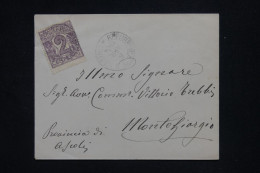 2
Illmo Signore
Sigr. Avv. Comm. Vittorio Tubbi
Montegiorgio
Provincia di
Ascoli